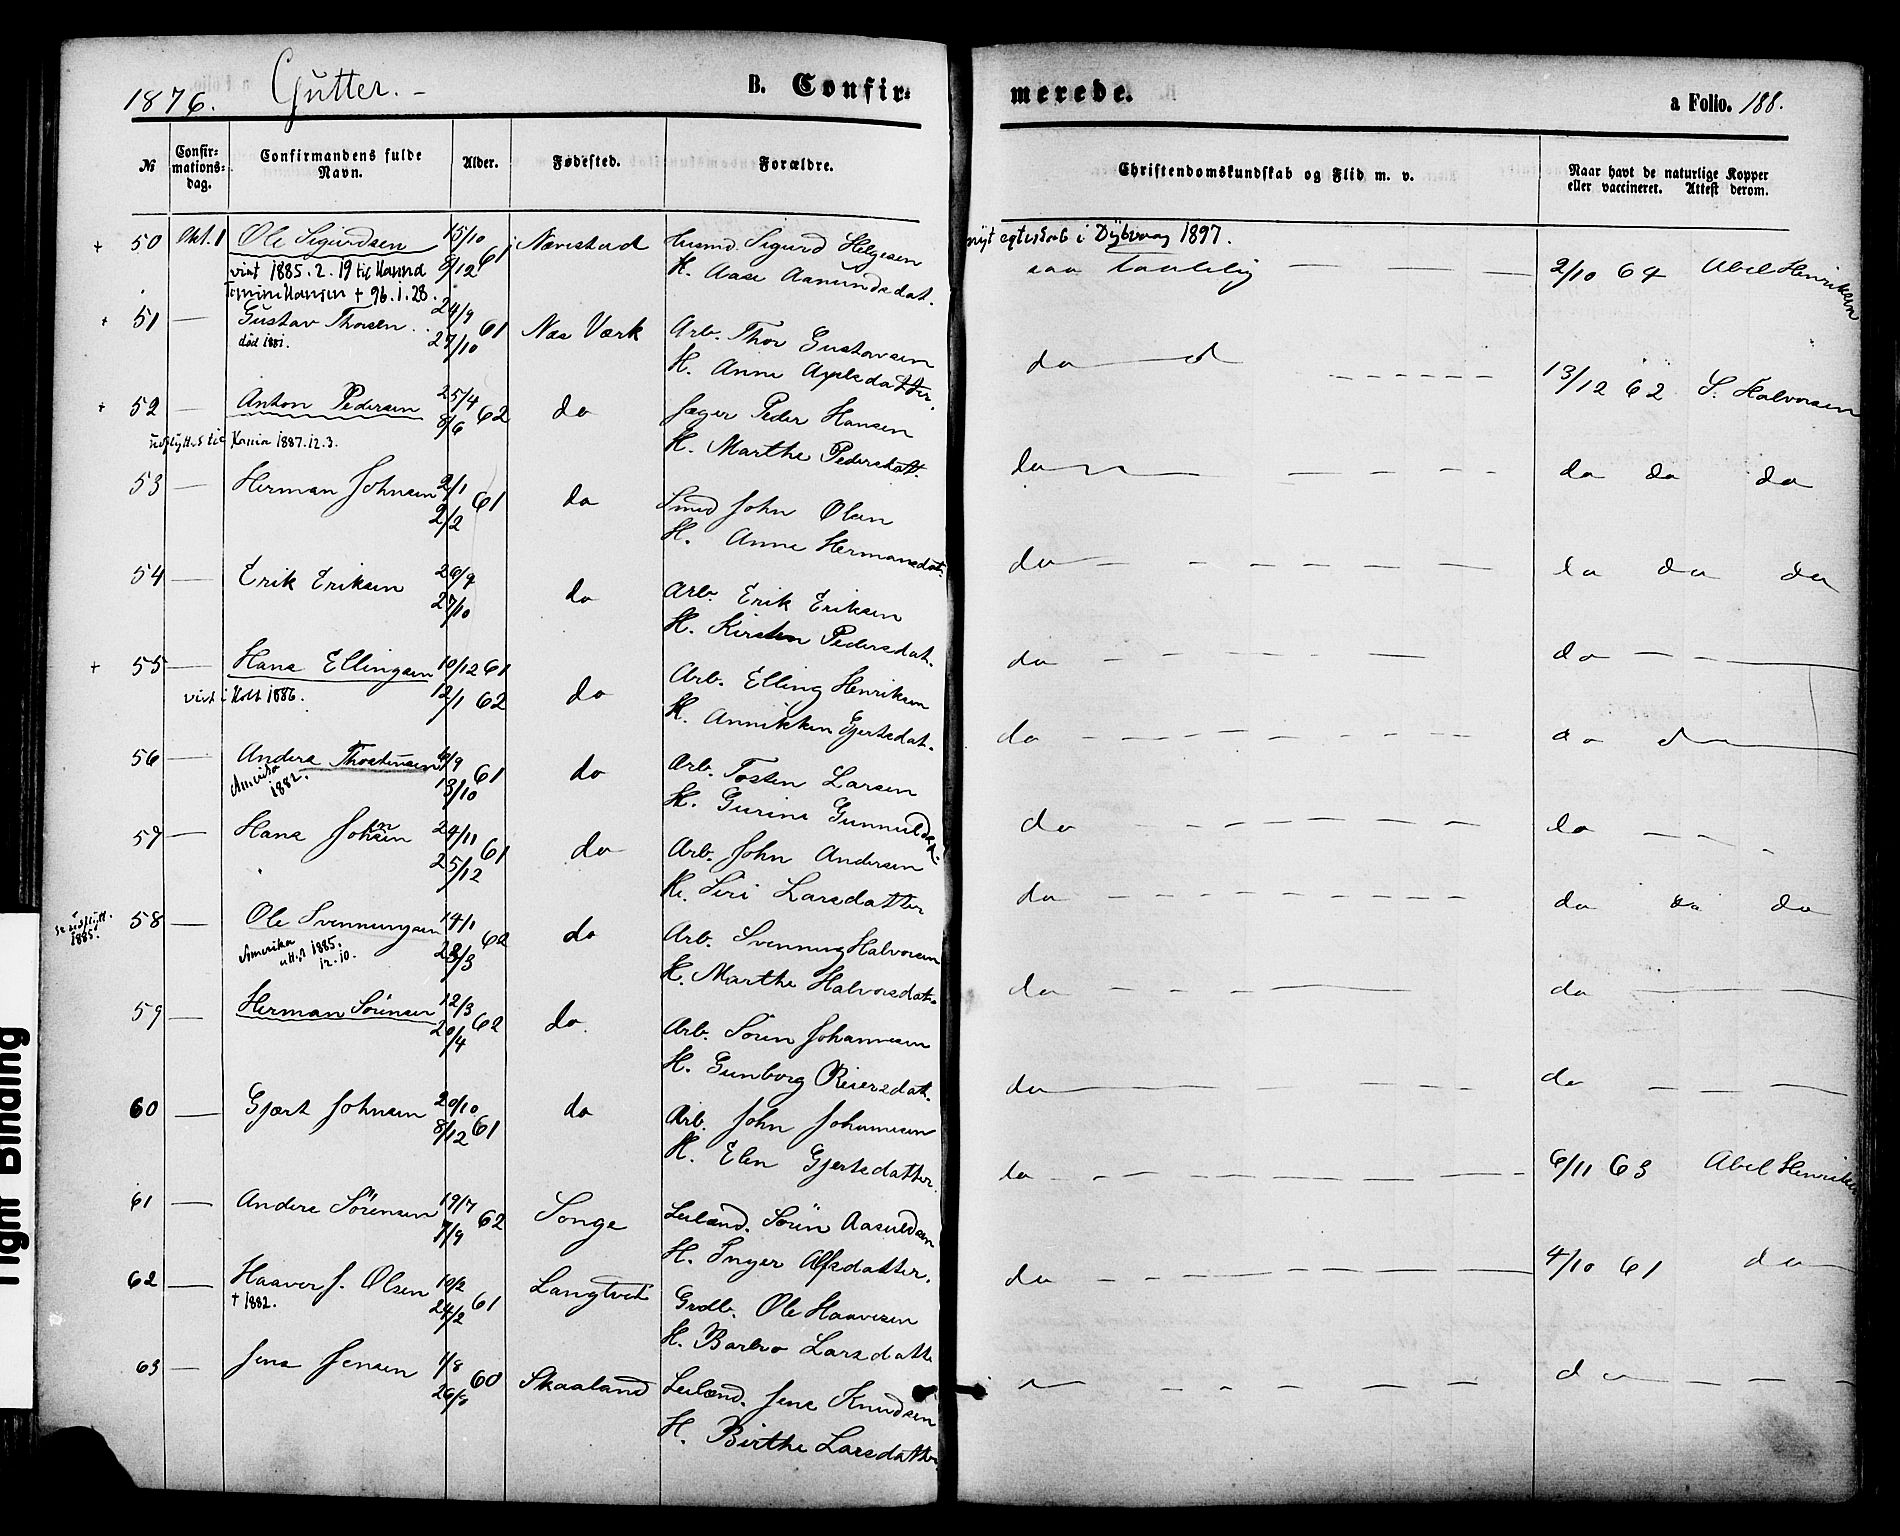 1876. Gutter. B. Confir= merede. a Folio. 188.
№ Confir=mations=dag. Confirmandens fulde Navn. Alder. Fødested. Forældre. Christendomskundskab og Flid m. v. Naar havt de naturlige Kopper eller vaccineret. Attest derom.
+ 50 Okt. 1 Ole Sigurdsen 15/10 8/12 61 Nævestad Husmd. Sigurd Helgesen
nyt egteskab i Dybvaag 1897.
viet 1885.2.19 til Hanna K. Aase Aamundsdat. saa taalelig 2/10 64 Abel Henriksen
Hansen + 96.1.28.
+ 51 — Gustav Thorsen 24/9 27/10 61 Næs Værk Arb. Thor Gustavsen
død 1881. K. Anne Axelsdatter. do 13/12 62 S. Halvorsen
+ 52 — Anton Pedersen 25/4 8/6 62 do Jæger Peder Hansen
udflyttet til Kania 1887.12.3. K. Marthe Pedersdatt. do do do do
53 — Herman Johnsen 2/1 2/2 61 do Smed John Olsen
K. Anne Hermansdat. do do do do
54 — Erik Eriksen 26/9 27/10 do Arb. Erik Eriksen
K. Kirsten Pedersdat. do do
+ 55 — Hans Ellingsen 10/12 61 12/1 62 do Arb. Elling Henriksen
viet i Holt 1886. K. Annikken Gjertsdat. do do
56 — Anders Thostensen 13/10 61 do Arb. Tosten Larsen
Amerika 1882. K. Gurine Gunnulds. do do
57 — Hans Johnsen 24/11 25/12 61 do Arb. John Andersen
K. Siri Larsdatter do do do do
58 — Ole Svenningsen 14/1 62 do Arb. Svenning Halvorsen
se udflytt. 1885.
Amerika utt. 1885. 12.10. K. Marthe Halvorsdat. do do
59 — Herman Sørensen 12/3 20/4 62 do. Arb. Søren Johannesen
K. Gunborg Reiersdat. do do
60 — Gjært Johnsen 20/10 8/12 61 do Arb. John Johannesen
K. Elen Gjertsdatter. do 6/11 63 Abel Henriksen
61 — Anders Sørensen 19/7 7/9 62 Songe Leilænd. Søren Aasuldsen
K. Inger Alfsdatter. do 4/10 61 do
62 — Haaver J. Olsen 10/2 24/2 61 Langtvet Grdb. Ole Haaversen
+ 1882. K. Barbro Larsdatt.
63 — Jens Jensen 1/8 60 Skaaland Leilænd. Jens Knudsen do
K. Birthe Larsdatter
Tight Binding